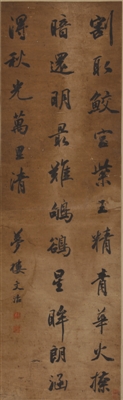 割取鮫宮紫玉精青華火捺
暗還明最難鸜鵒星眸朗涵
得秋光萬里清 夢樓文治